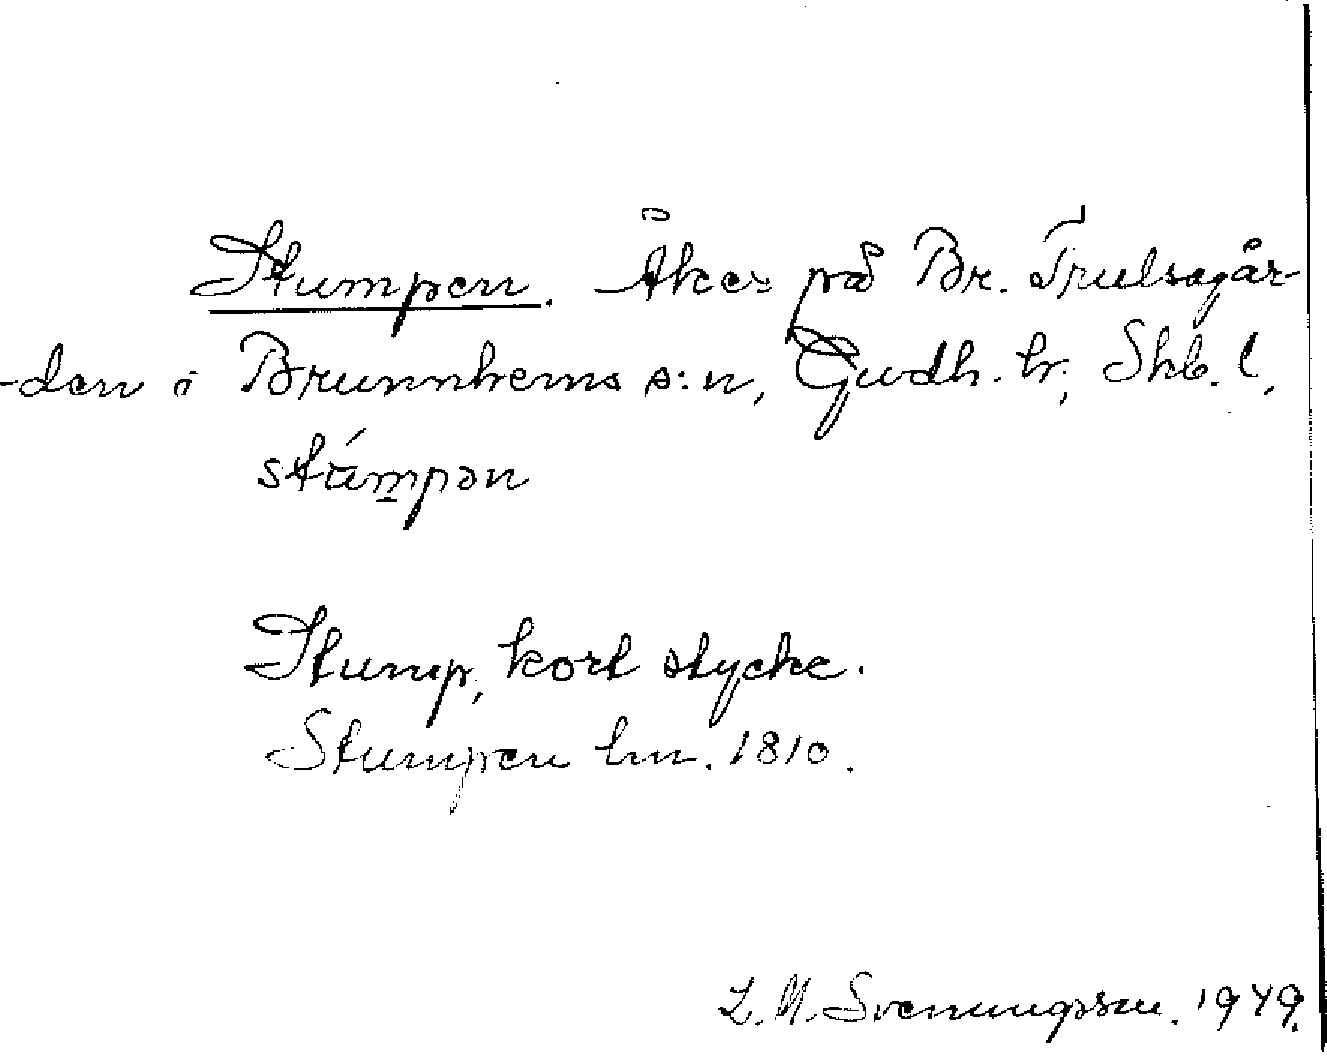 Stumpen. Åker på Br. Trulsagår-
-den i Brunnhems s:n, Gudh. hr; Skb. l.
stúmpən
Stump, kort stycke.
Stumpen lm. 1810.
L. M. Svenungsson. 1949.